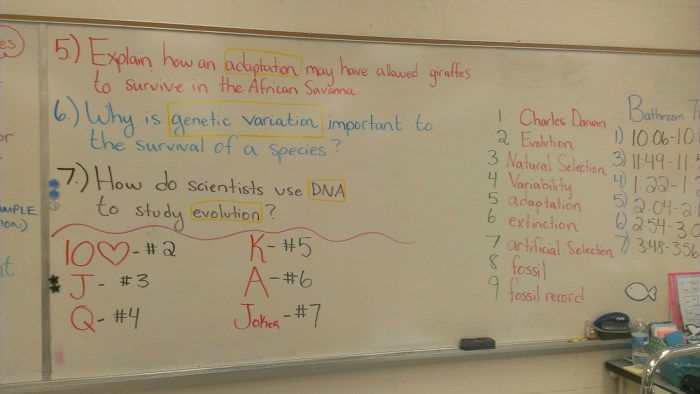 es)
or
AMPLE
ION)
t
5.) Explain how an adaptation may have allowed giraffes
to survive in the African Savanna.
6.) Why is genetic variation important to
the survival of a species?
7.) How do scientists use DNA
to study evolution?
10♡ - #2
J - #3
Q - #4
K - #5
A - #6
Joker - #7
1 Charles Darwin
2 Evolution
3 Natural Selection
4 Variability
5 adaptation
6 extinction
7 artificial Selection
8 fossil
9 fossil record
Bathroom
1) 10:06-10:
3) 11:49-11:
4) 1:22-1:
5) 2:04-2:
6) 2:54-3:0
7) 3:48-3:56